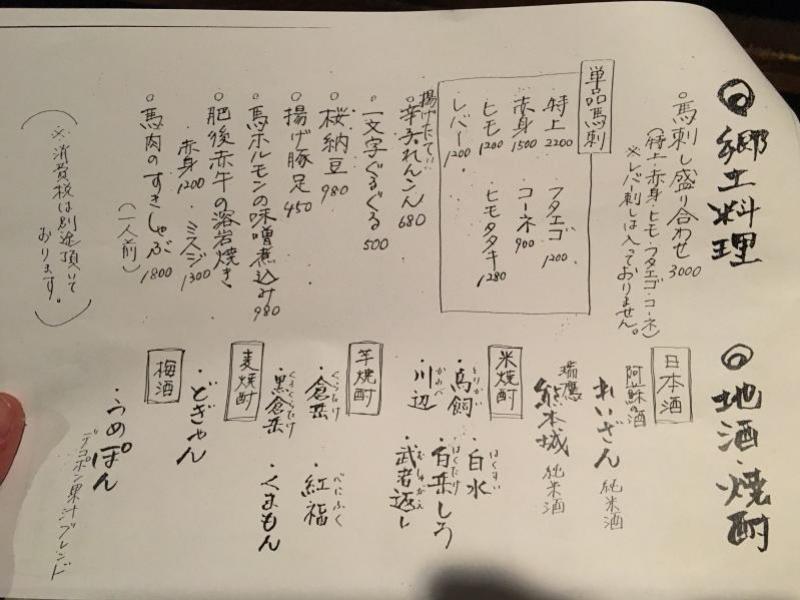 ◎郷土料理
○馬刺し盛り合わせ 3000
(特上・赤身・ヒモ・フタエゴ・コーネ)
※レバー刺しは入っておりません。
単品馬刺
特上 2200 フタエゴ 1200
赤身 1500 コーネ 900
ヒモ 1200 ヒモタタキ 1280
レバー 1200
揚げたて!!
○辛子れんこん 680
○一文字ぐるぐる 500
○桜納豆 980
○揚げ豚足 450
○馬ホルモンの味噌煮込み 980
○肥後赤牛の溶岩焼き
・赤身 1200 ・ミスジ 1300
○馬肉のすきしゃぶ 1800
(一人前)
(※消費税は別途頂いて
おります。)
◎地酒・焼酎
日本酒
阿蘇の酒
れいざん 純米酒
瑞鷹
熊本城 純米酒
米焼酎
とりかい はくすい
・鳥飼 ・白水
はくたけ
・白岳しろ
かわべ むしゃがえ
・川辺 ・武者返し
芋焼酎
くらたけ べにふく
・倉岳 ・紅福
くろくらたけ
・黒倉岳 ・くまもん
麦焼酎
・どぎゃん
梅酒
・うめぽん
デコポン果汁ブレンド